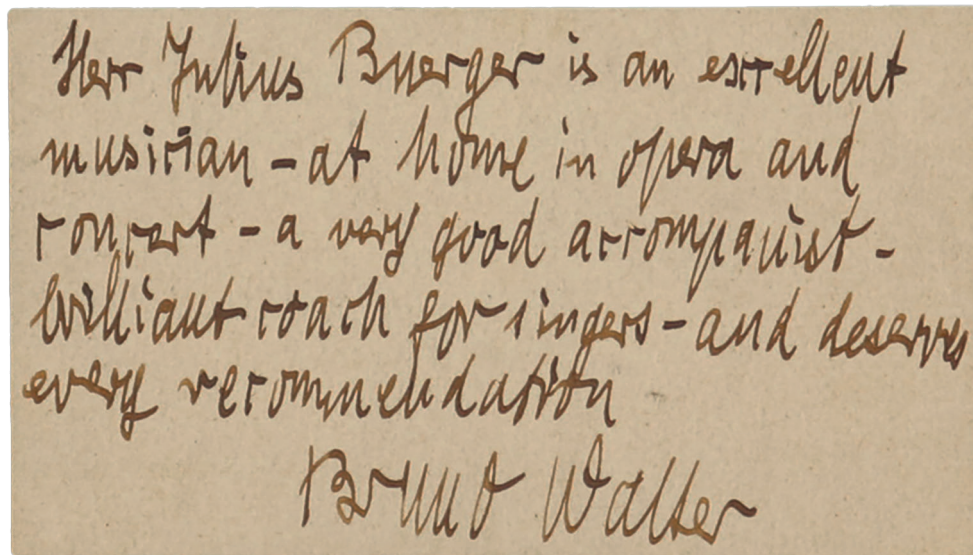 Herr Julius Buerger is an excellent
musician - at home in opera and
concert - a very good accompanist -
brilliant coach for singers - and deserves
every recommendation
Bruno Walter